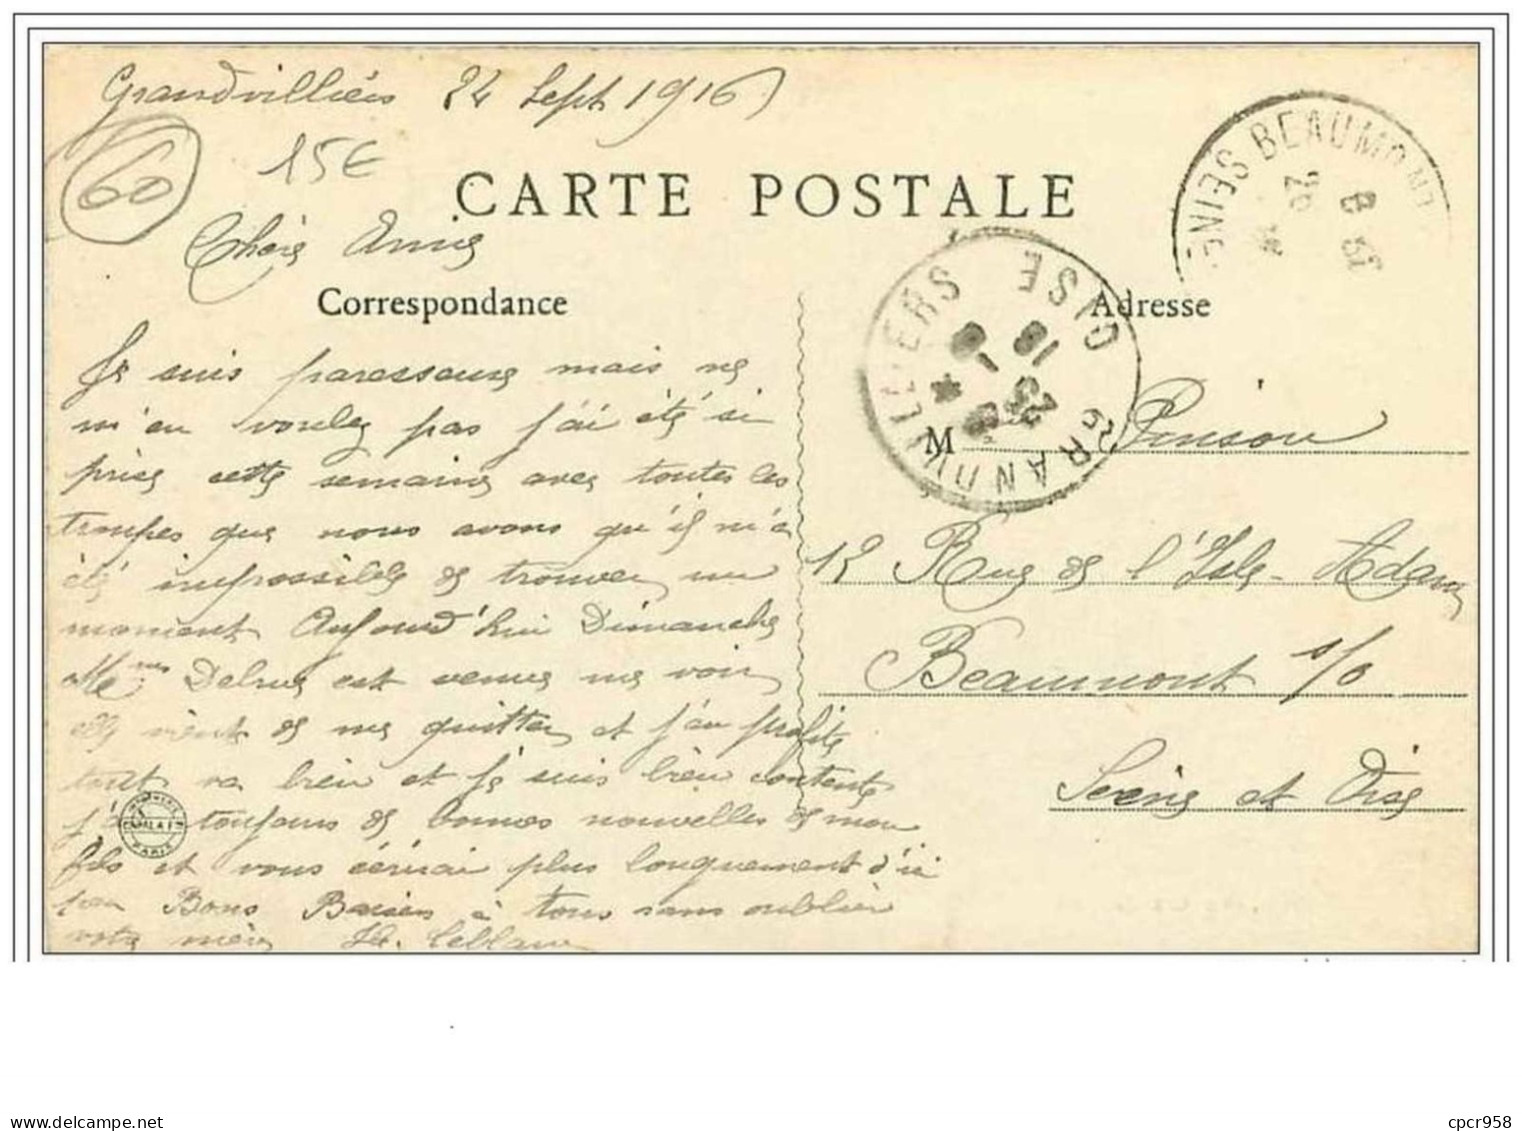 Grandvilliers 24 Sept 1916
60
15€
CARTE POSTALE
Chère Amie
Correspondance
Adresse
Je suis paresseuse mais ne
m'en voulez pas j'ai été si
prise cette semaine avec toutes les
troupes que nous avons qu'il m'a
été impossible de trouver un
moment Aujourd'hui Dimanche
Mme Delrue est venue me voir
elle vient de me quitter et j'en profite
tout va bien et je suis bien contente
j'ai toujours de bonnes nouvelles de mon
fils et vous écrirai plus longuement d'ici
peu Bons Baisers à tous sans oublier
votre mère Leblanc
M Pinson
12 Rue de l'Isle-Adam
Beaumont s/o
Seine et Oise
GRANDVILLIERS OISE
25 - 9
16
BEAUMONT
SEINE
26
PARIS
cpcr958